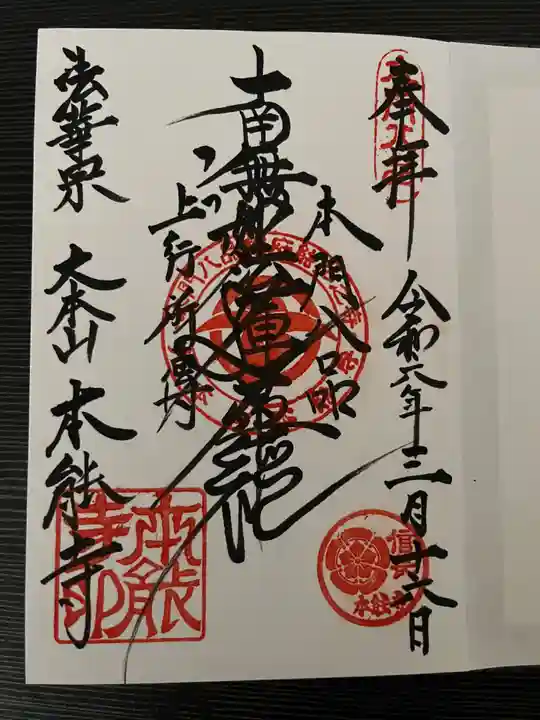 奉拝
令和六年三月十六日
本門八品
南無妙法蓮華経
上行所傳
法華宗
大本山 本能寺
本能
寺印
信長
本能寺